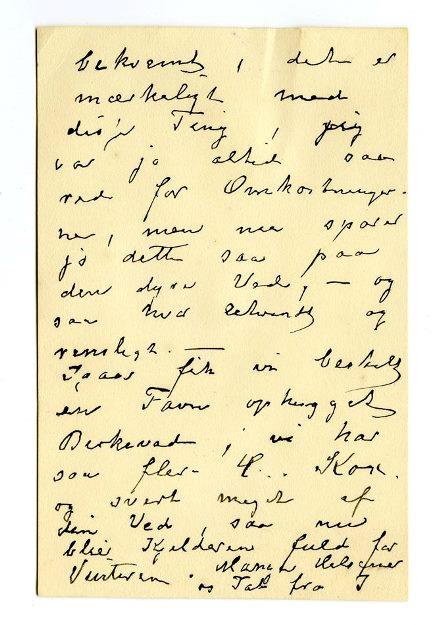 bekvemt, det er
mærkeligt med
disse Ting, jeg
var jo altid saa
red for Omkostninger-
ne, men nu sparer
jo dette saa paa
den dyre Ved, — og
saa
og
renslig. —
Igaar fik vi bestilt
en Favn ophugget
Birkeved, vi har
saa fler- 4... Kox.
og svert meget af
Ved, saa nu
blir Kjelderen fuld for
Vinteren. Mange Hilsner
og Tak fra I